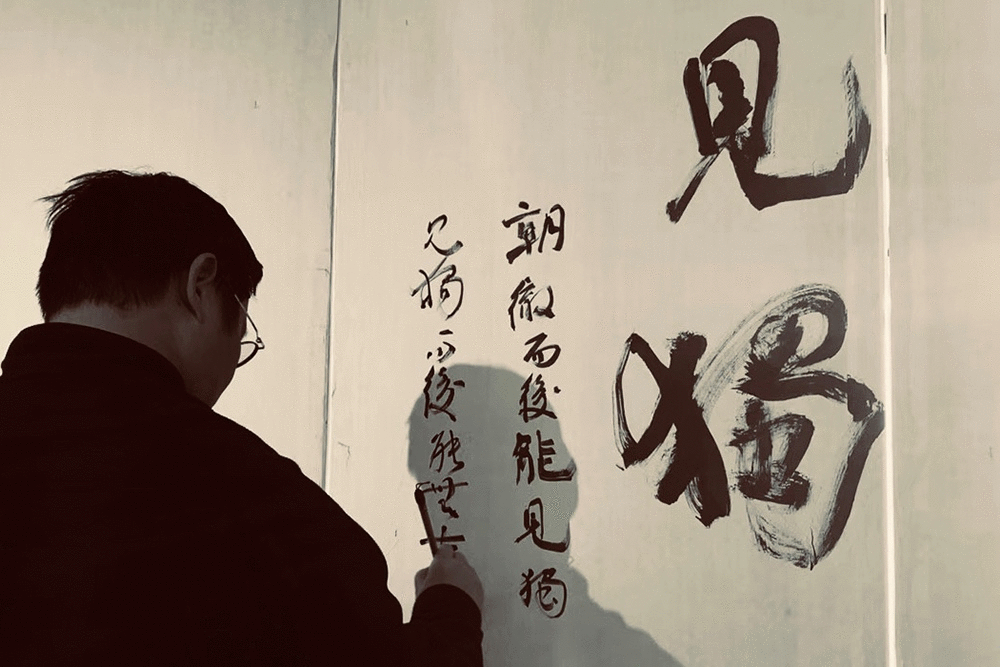 見獨
朝徹而後能見獨
見獨而後能無